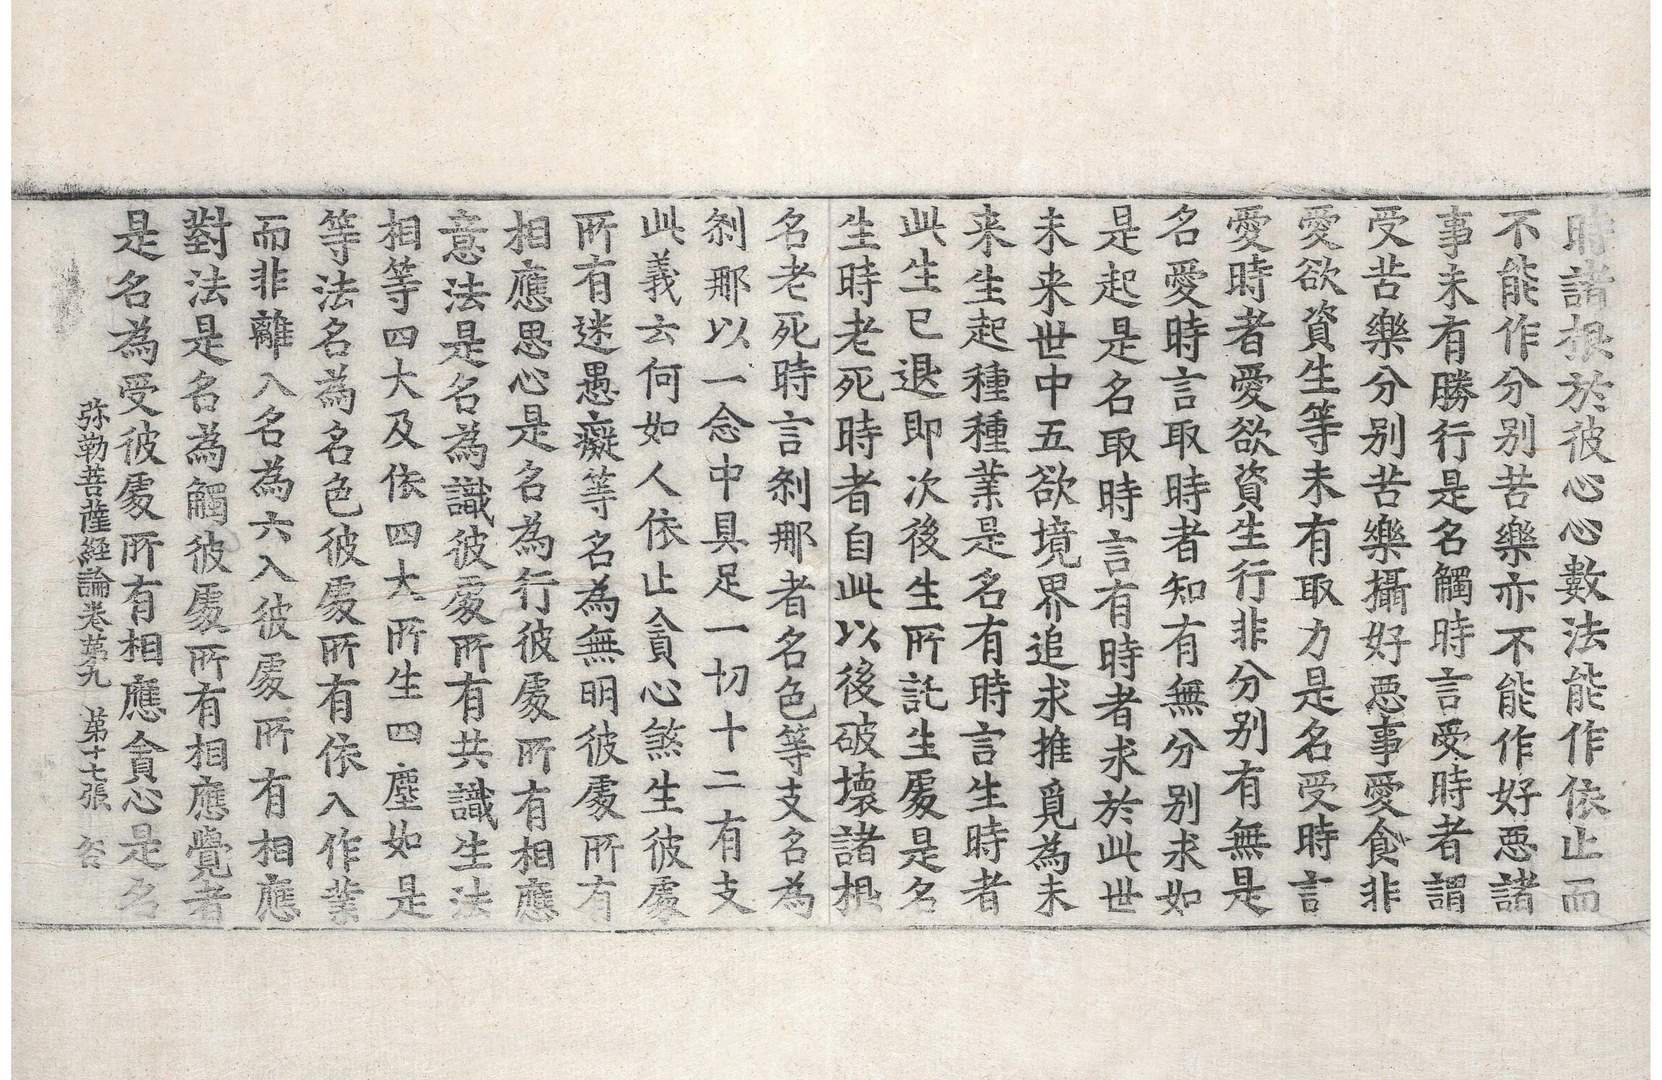 時諸根於彼心心數法能作依止而
不能作分別苦樂亦不能作好惡諸
事未有勝行是名觸時言受時者謂
受苦樂分別苦樂攝好惡事愛食非
愛欲資生等未有取力是名受時言
愛時者愛欲資生行非分別有無是
名愛時言取時者知有無分別求如
是起是名取時言有時者求於此世
未来世中五欲境界追求推覓為未
来生起種種業是名有時言生時者
此生已退即次後生所託生處是名
生時老死時者自此以後破壞諸根
名老死時言剎那者名色等支名為
剎那以一念中具足一切十二有支
此義云何如人依止貪心煞生彼處
所有迷愚癡等名為無明彼處所有
相應思心是名為行彼處所有相應
意法是名為識彼處所有共識生法
相等四大及依四大所生四塵如是
等法名為名色彼處所有依入作業
而非離入名為六入彼處所有相應
對法是名為觸彼處所有相應覺者
是名為受彼處所有相應貪心是名
弥勒菩薩經論卷苐九 苐十七張